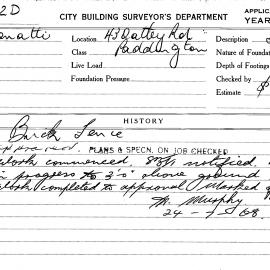 2D CITY BUILDING SURVEYOR'S DEPARTMENT APPLIC
YEAR
natti Location 43 Oatley Rd. Description
Class Paddington Nature of Foundation
Live Load Depth of Footings
Foundation Pressure Checked by
Estimate $
HISTORY
Brick Fence
PLANS & SPECN. ON JOB CHECKED
Work commenced. notified.
in progress to 3'0" above ground
Work completed to approval Marked off
Murphy
24 68.